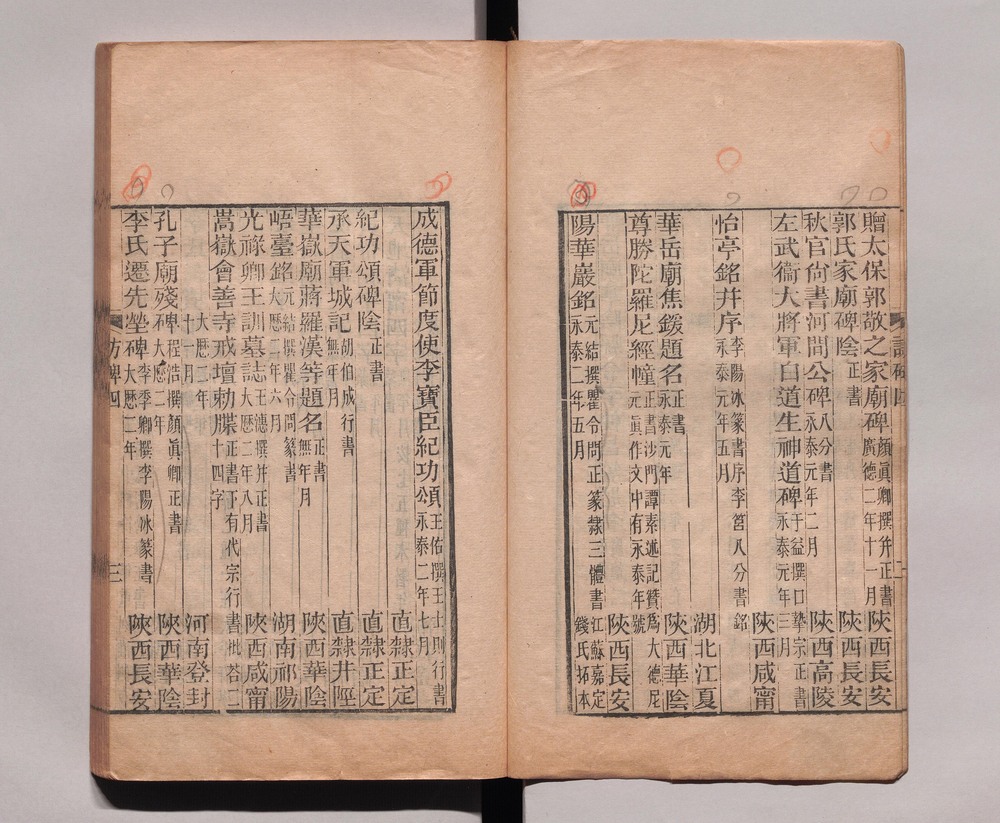 贈太保郭敬之家廟碑顏眞卿撰并正書廣德二年十一月陝西長安
郭氏家廟碑陰正書陝西長安
秋官尙書河閒公碑八分書永泰元年二月陝西高陵
左武衞大將軍白道生神道碑于益撰摯宗正書永泰元年三月陝西咸甯
怡亭銘幷序李陽冰篆書序李莒八分書銘永泰元年五月湖北江夏
華岳廟焦鍰題名正書永泰元年陝西華陰
尊勝陀羅尼經幢正書沙門譚素述記贊爲大德尼元眞作文中有永泰年號陝西長安
陽華巖銘元結撰瞿令問正篆隸三體書永泰二年五月江蘇嘉定錢氏拓本
成德軍節度使李寶臣紀功頌王佑撰王士則行書永泰二年七月直隸正定
紀功頌碑陰正書直隸正定
承天軍城記胡伯成行書無年月直隸井陘
華嶽廟蔣羅漢等題名正書無年月陝西華陰
峿臺銘元結撰瞿令問篆書大厯二年六月湖南祁陽
光祿卿王訓墓誌王漶撰并正書大厯二年八月陝西咸甯
嵩嶽會善寺戒壇勅牒正書下有代宗行書批荅二十四字
大厯二年十一月河南登封
孔子廟殘碑程浩撰顏眞卿正書大厯二年陝西華陰
李氏遷先塋碑李季卿撰李陽冰篆書大厯二年陝西長安
方碑四
三